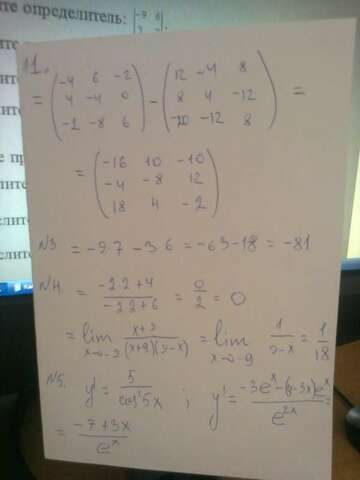 те определитель: |-9 6
№1.
= (-4 6 -2
4 -4 0
-1 -8 6) - (12 -4 8
8 4 -12
-20 -12 8) =
= (-16 10 -10
-4 -8 12
18 4 -2)
№3 = -9·7 - 3·6 = -63-18 = -81
№4 = (-2·2+4)/(-2·2+6) = 0/2 = 0
= lim x→-9 (x+9)/((x+9)(9-x)) = lim x→-9 1/(9-x) = 1/18
№5. y' = 5/cos²5x ; y' = (-3e^x-(4-3x)e^x)/e^2x =
= (-7+3x)/e^x